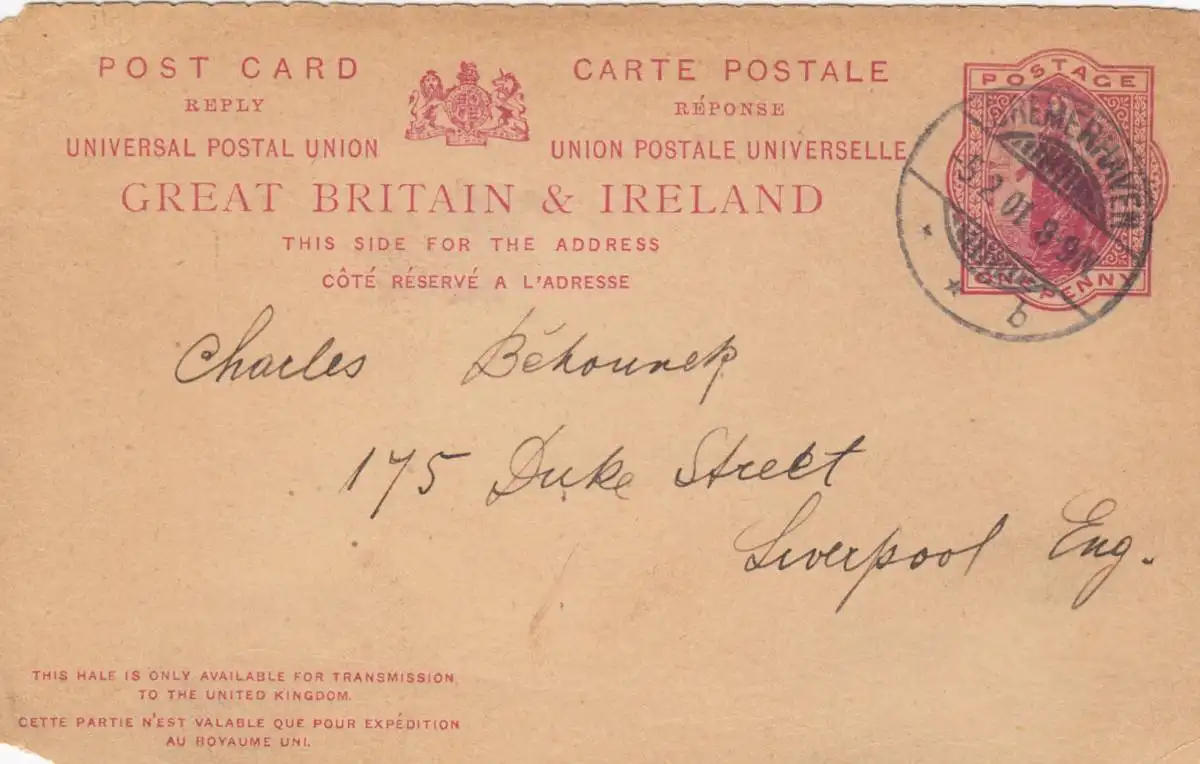 POST CARD
REPLY
UNIVERSAL POSTAL UNION
CARTE POSTALE
RÉPONSE
UNION POSTALE UNIVERSELLE
GREAT BRITAIN & IRELAND
THIS SIDE FOR THE ADDRESS
CÔTÉ RÉSERVÉ A L'ADRESSE
POSTAGE
ONE PENNY
BREMERHAVEN
2 01 8-9N
b
Charles
175 Duke Street
Liverpool Eng.
THIS HALF IS ONLY AVAILABLE FOR TRANSMISSION
TO THE UNITED KINGDOM.
CETTE PARTIE N'EST VALABLE QUE POUR EXPÉDITION
AU ROYAUME UNI.